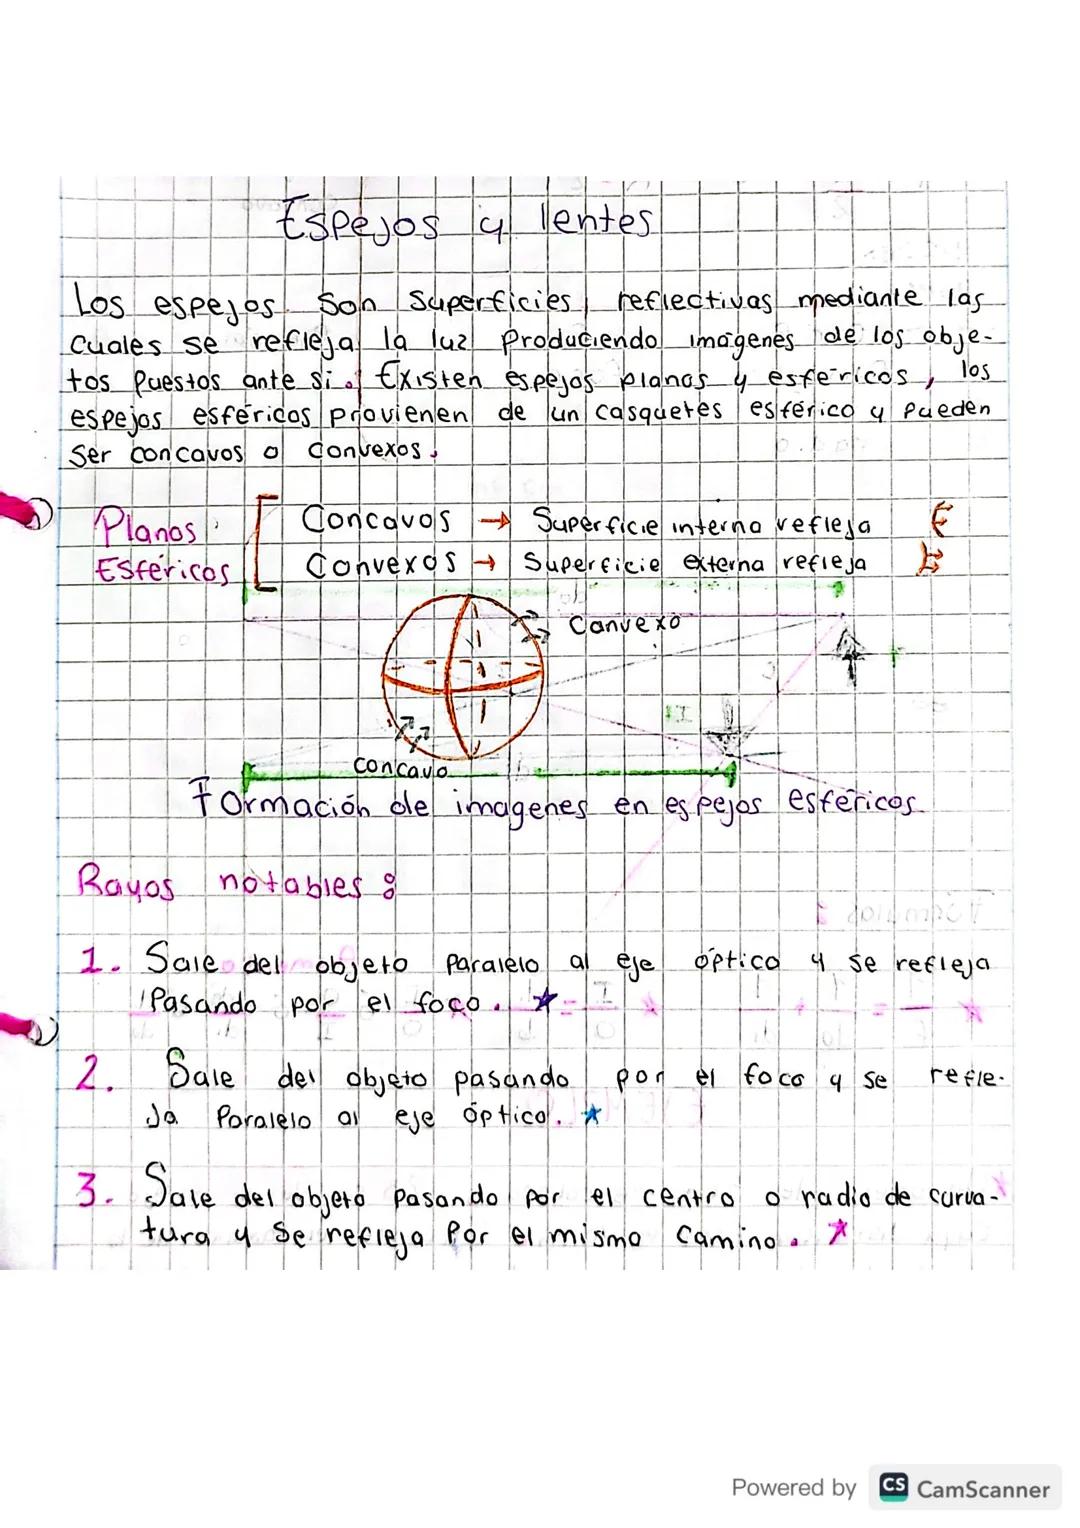 Espejos y lentes
Los espejos son superficies reflectivas mediante las
cuales se refleja la luz produciendo imágenes de los obje-
tos puestos ante si. Existen espejos planos y esféricos, los
espejos esféricos provienen de un casquetes esférico y pueden
ser concavos o convexos.
Planos
Esféricos
Concavos → Superficie interna refleja
Convexos → Superficie externa refleja
Convexo
concavo
Formación de imagenes en espejos esféricos
Rayos notables:
1. Sale del objeto paralelo al eje óptico y se refleja
Pasando por el foco.
2. Sale del objeto pasando por el foco y se refle-
ja Paralelo al eje óptico.
3. Sale del objeto pasando por el centro o radio de curva-
tura y se refleja Por el mismo camino.
Powered by CS CamScanner